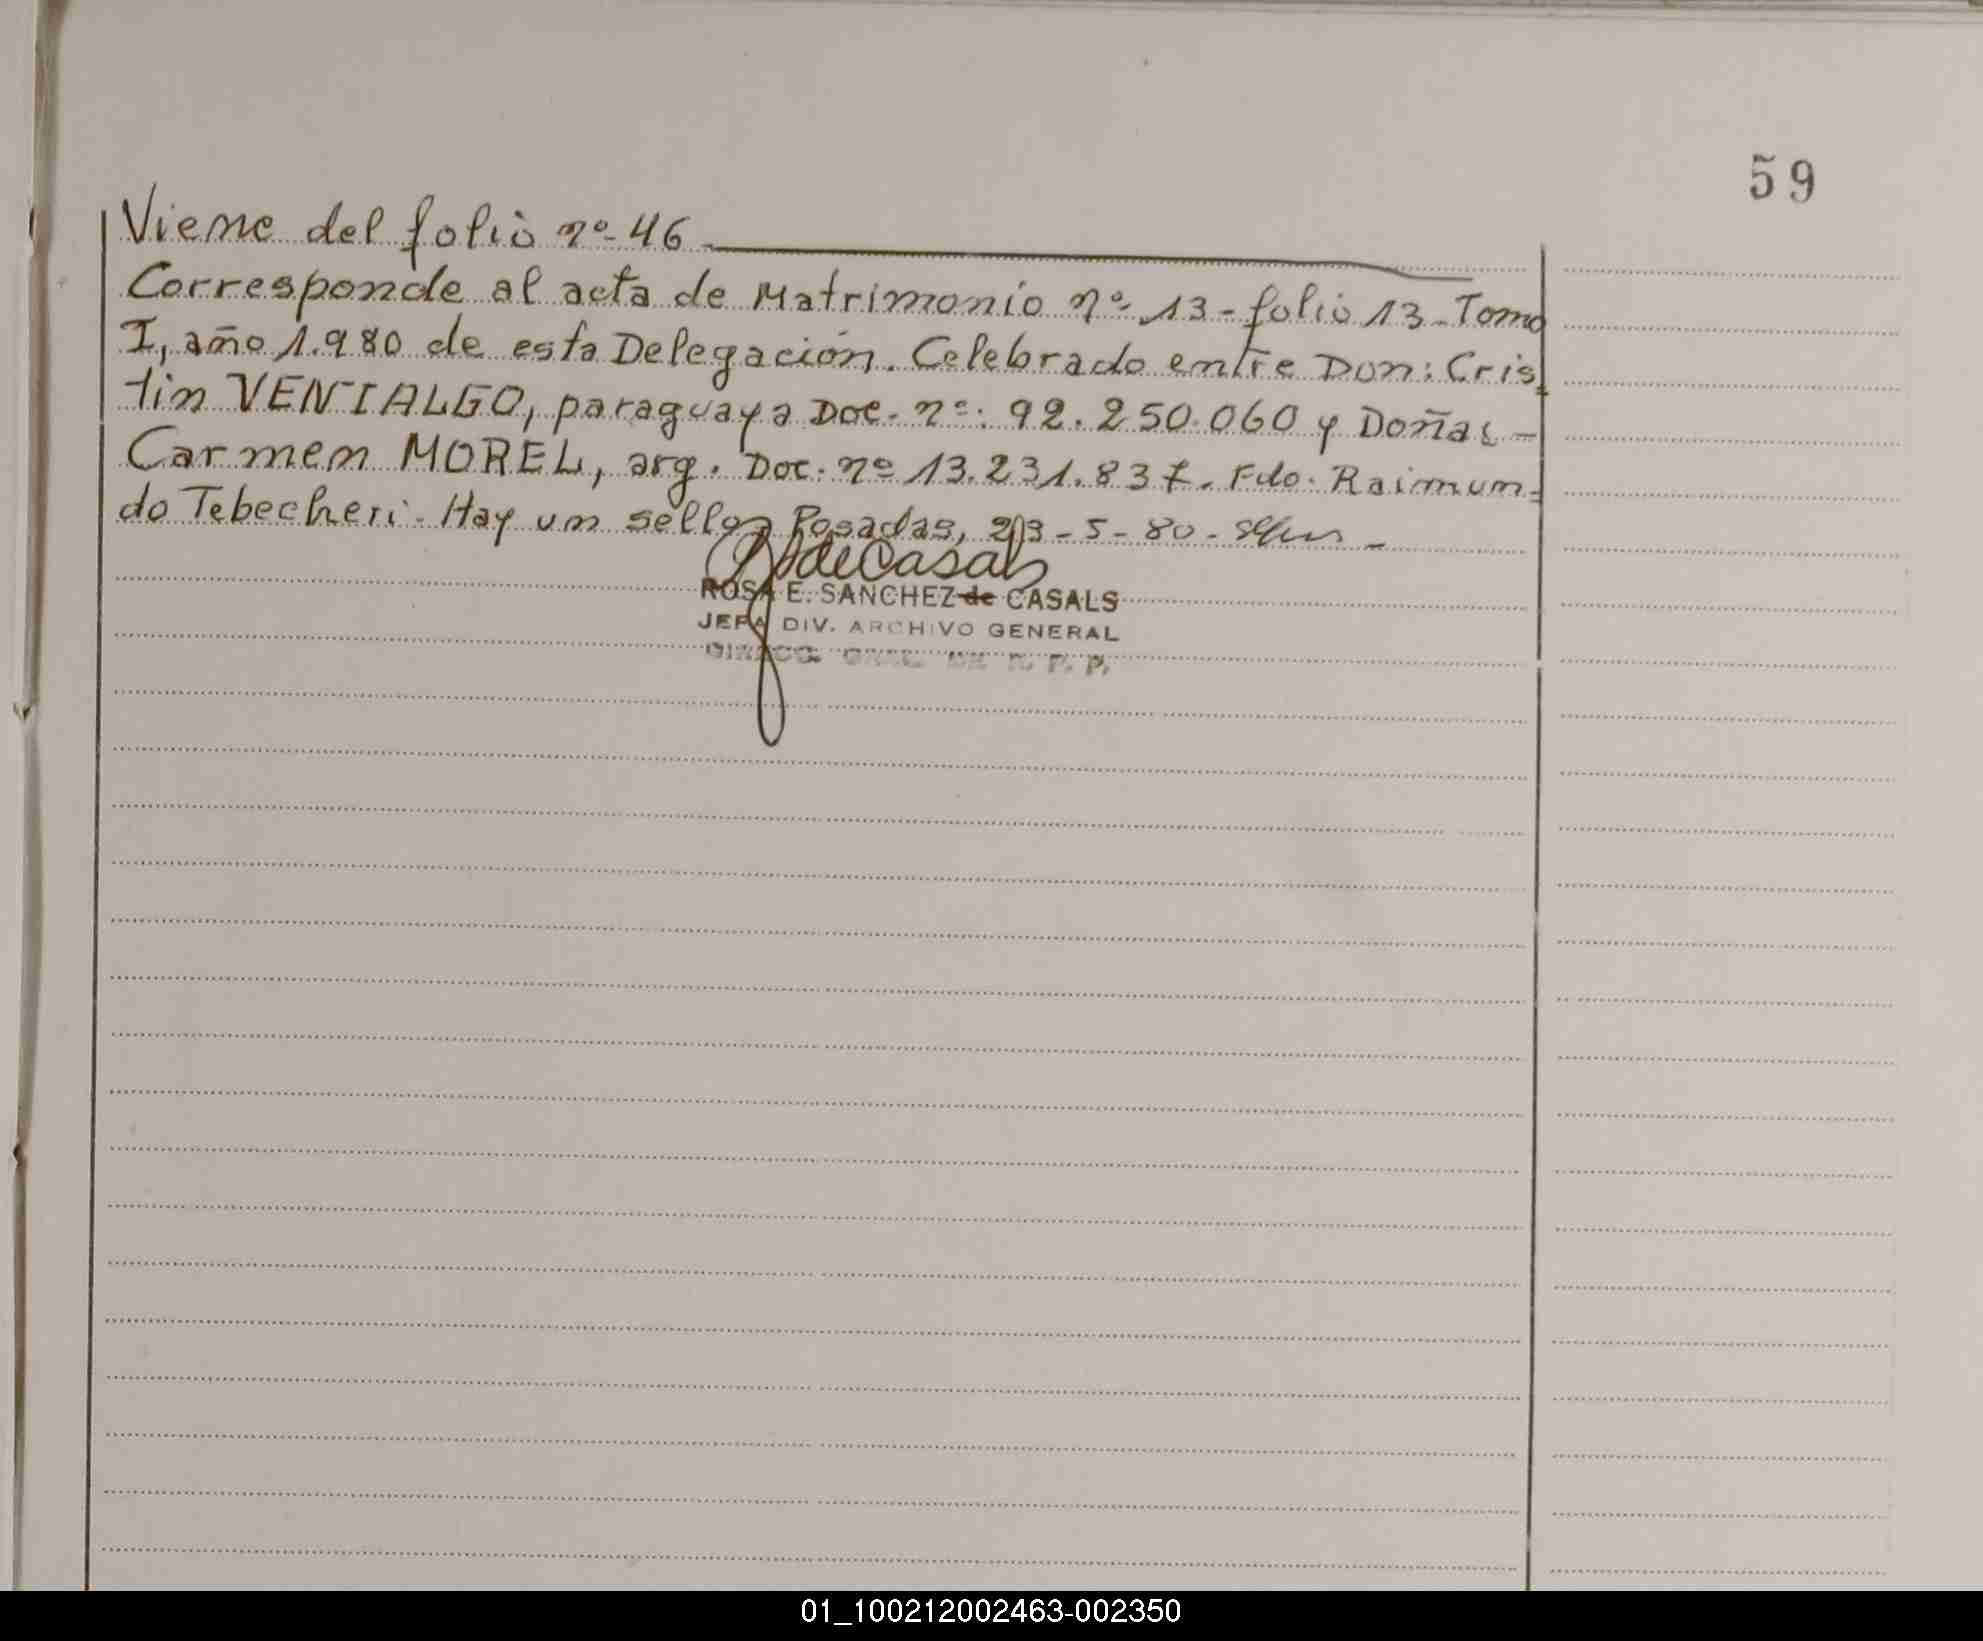 59
Viene del folio nº 46
Corresponde al acta de Matrimonio nº 13 - folio 13 - Tomo
I, año 1.980 de esta Delegación. Celebrado entre Don: Cris-
tin VENIALGO, paraguaya Doc. nº: 92.250.060 y Doña: -
Carmen MOREL, arg. Doc. nº 13.231.837. Fdo. Raimun-
do Tebecheri. Hay un sello. Posadas, 23 - 5 - 80 -
de Casals
ROSA E. SANCHEZ de CASALS
JEFA DIV. ARCHIVO GENERAL
GRAL. DE R. P. P.
01_100212002463-002350